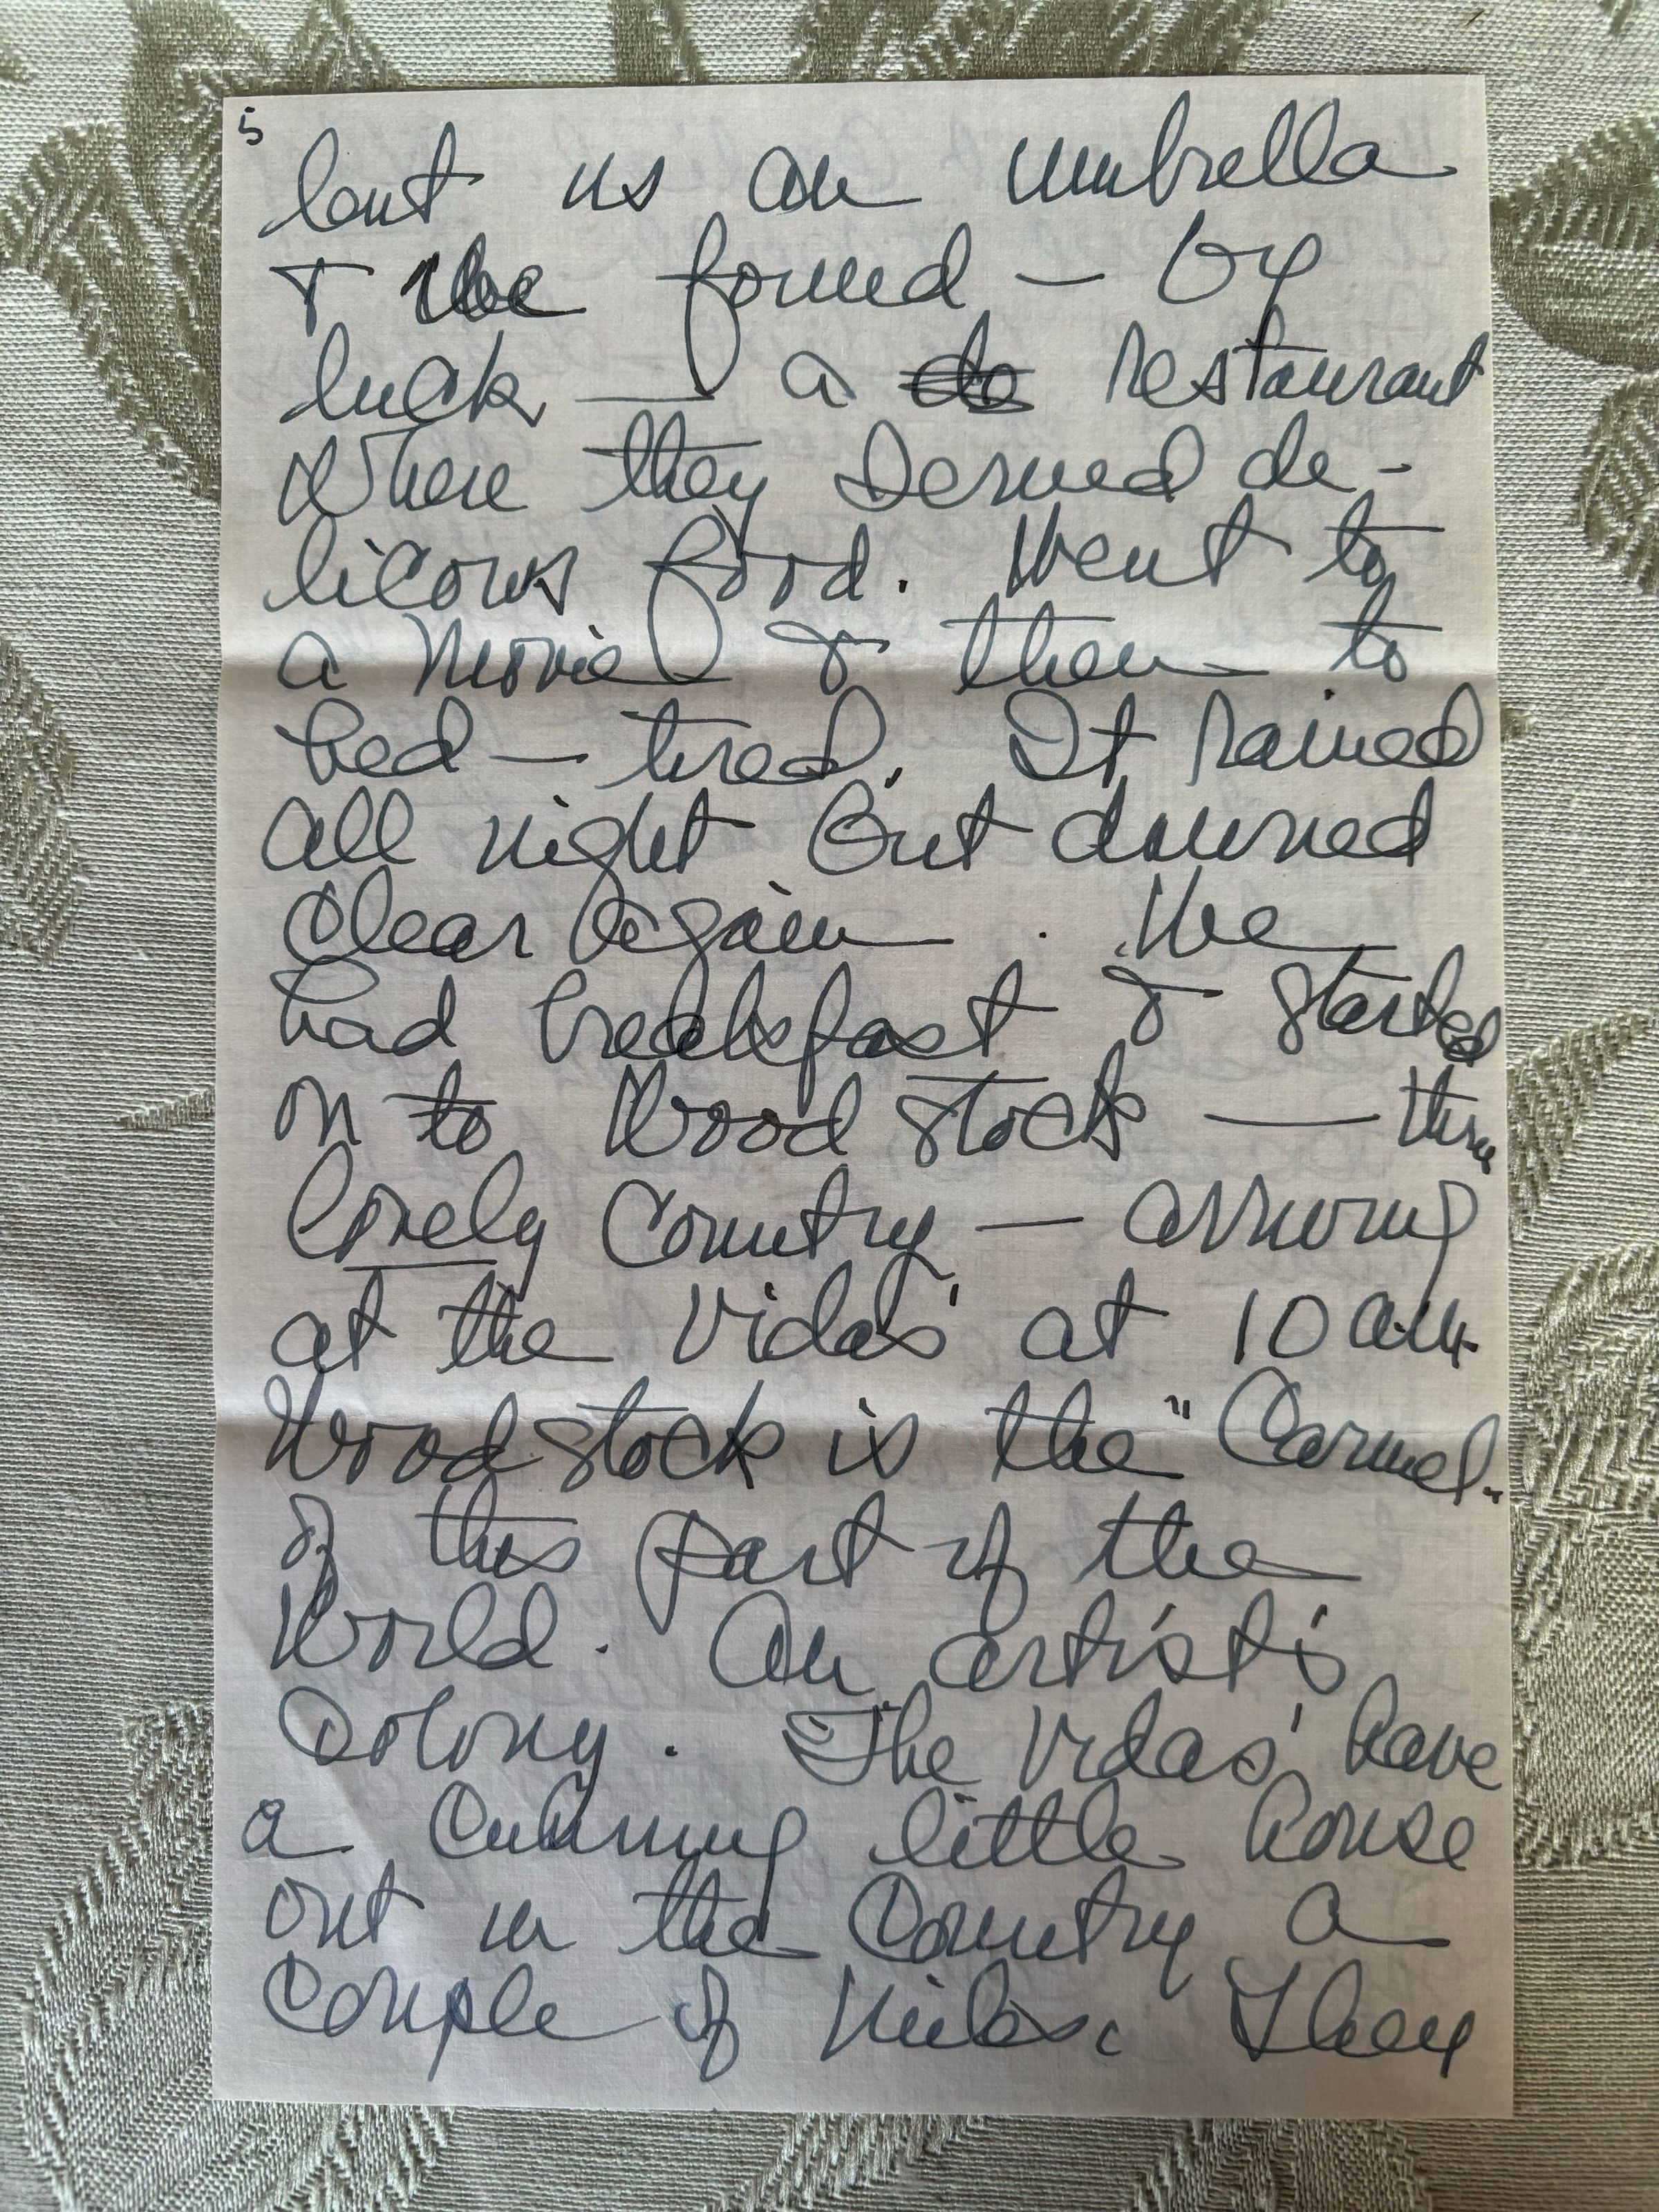 5
lent us an umbrella
+ we found — by
luck — a restaurant
where they served de-
licous food. Went to
a movie & then to
bed — tired. It rained
all night but dawned
clear again. We
had breakfast & started
on to Woodstock — thru
lovely country — arriving
at the Vidas' at 10 a.m.
Woodstock is the "Carmel"
of this part of the
World. An artist's
Colony. The Vidas' have
a cunning little house
out in the Country a
couple of miles. They